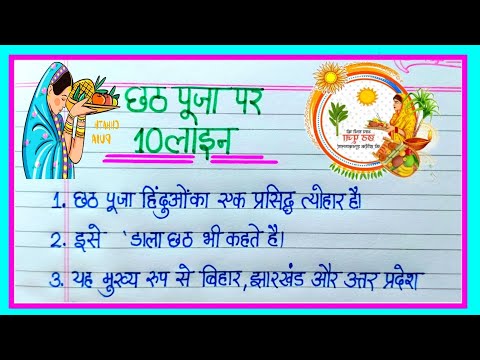 छठ पूजा पर
10लाइन
CHHATH
PUJA
1. छठ पूजा हिंदुओंका एक प्रसिद्ध त्योहार है।
2. इसे `डाला छठ भी कहते है।
3. यह मुख्य रुप से बिहार, झारखंड और उत्तर प्रदेश